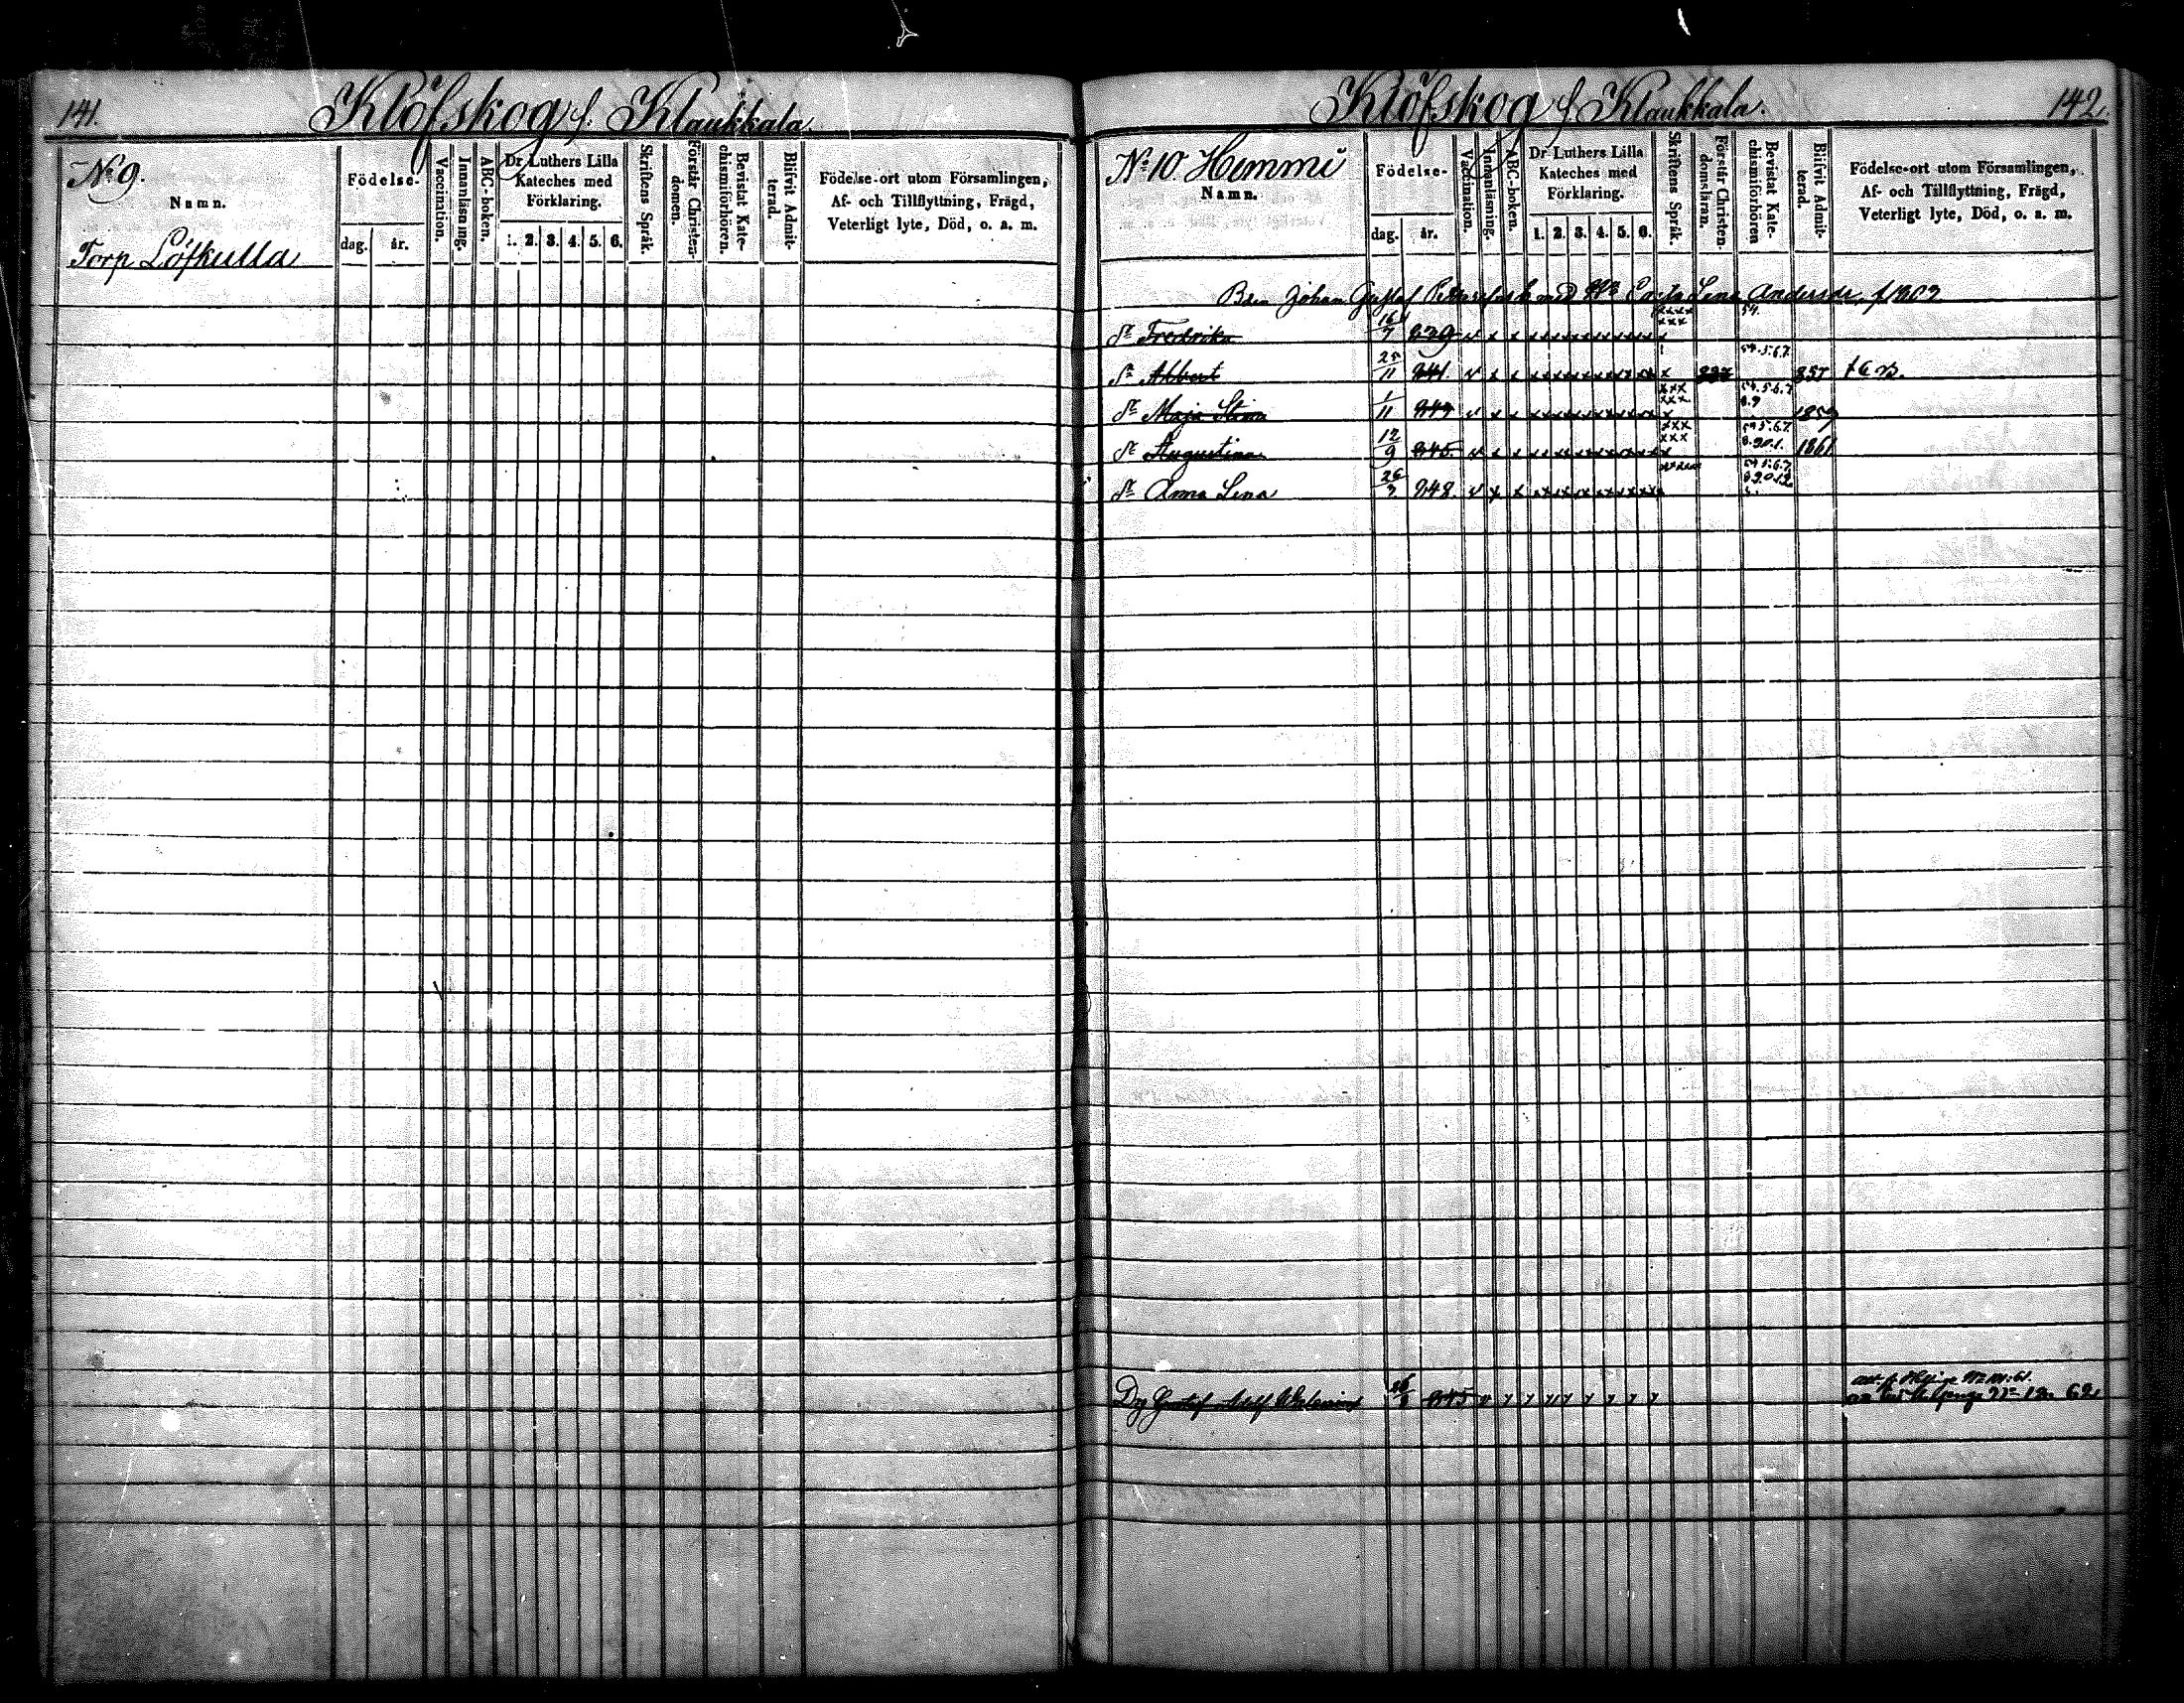 141.
Klöfskog f. Klaukkala.
No 9.
Namn.
Födelse-
dag.
år.
Vaccination.
Innanläsning.
ABC-boken.
Dr Luthers Lilla
Kateches med
Förklaring.
1. 2. 3. 4. 5. 6.
Skriftens Språk.
Förstår Christen-
domen.
Bevistat Kate-
chismiförhören.
Blifvit Admit-
terad.
Födelse-ort utom Församlingen,
Af- och Tillflyttning, Frägd,
Veterligt lyte, Död, o. a. m.
Torp Löfkulla
Klöfskog f. Klaukkala.
142.
No 10 Hemmi
Namn.
Födelse-
dag.
år.
Vaccination.
Innanläsning.
ABC-boken.
Dr Luthers Lilla
Kateches med
Förklaring.
1. 2. 3. 4. 5. 6.
Skriftens Språk.
Förstår Christen-
domsläran.
Bevistat Kate-
chismiförhören
Blifvit Admit-
terad.
Födelse-ort utom Församlingen,
Af- och Tillflyttning, Frägd,
Veterligt lyte, Död, o. a. m.
Johan Gustaf Lena Andersdr
Fredrika 829 54.
Albert 25/11 841. 54.5.6.7. 857
Maja Stina 1/11 54.5.6.7. 8.9 1859
Augustina 12/9 845 1861
Anna Lena 26/3 848
Drg Gustaf Adolf 845 62